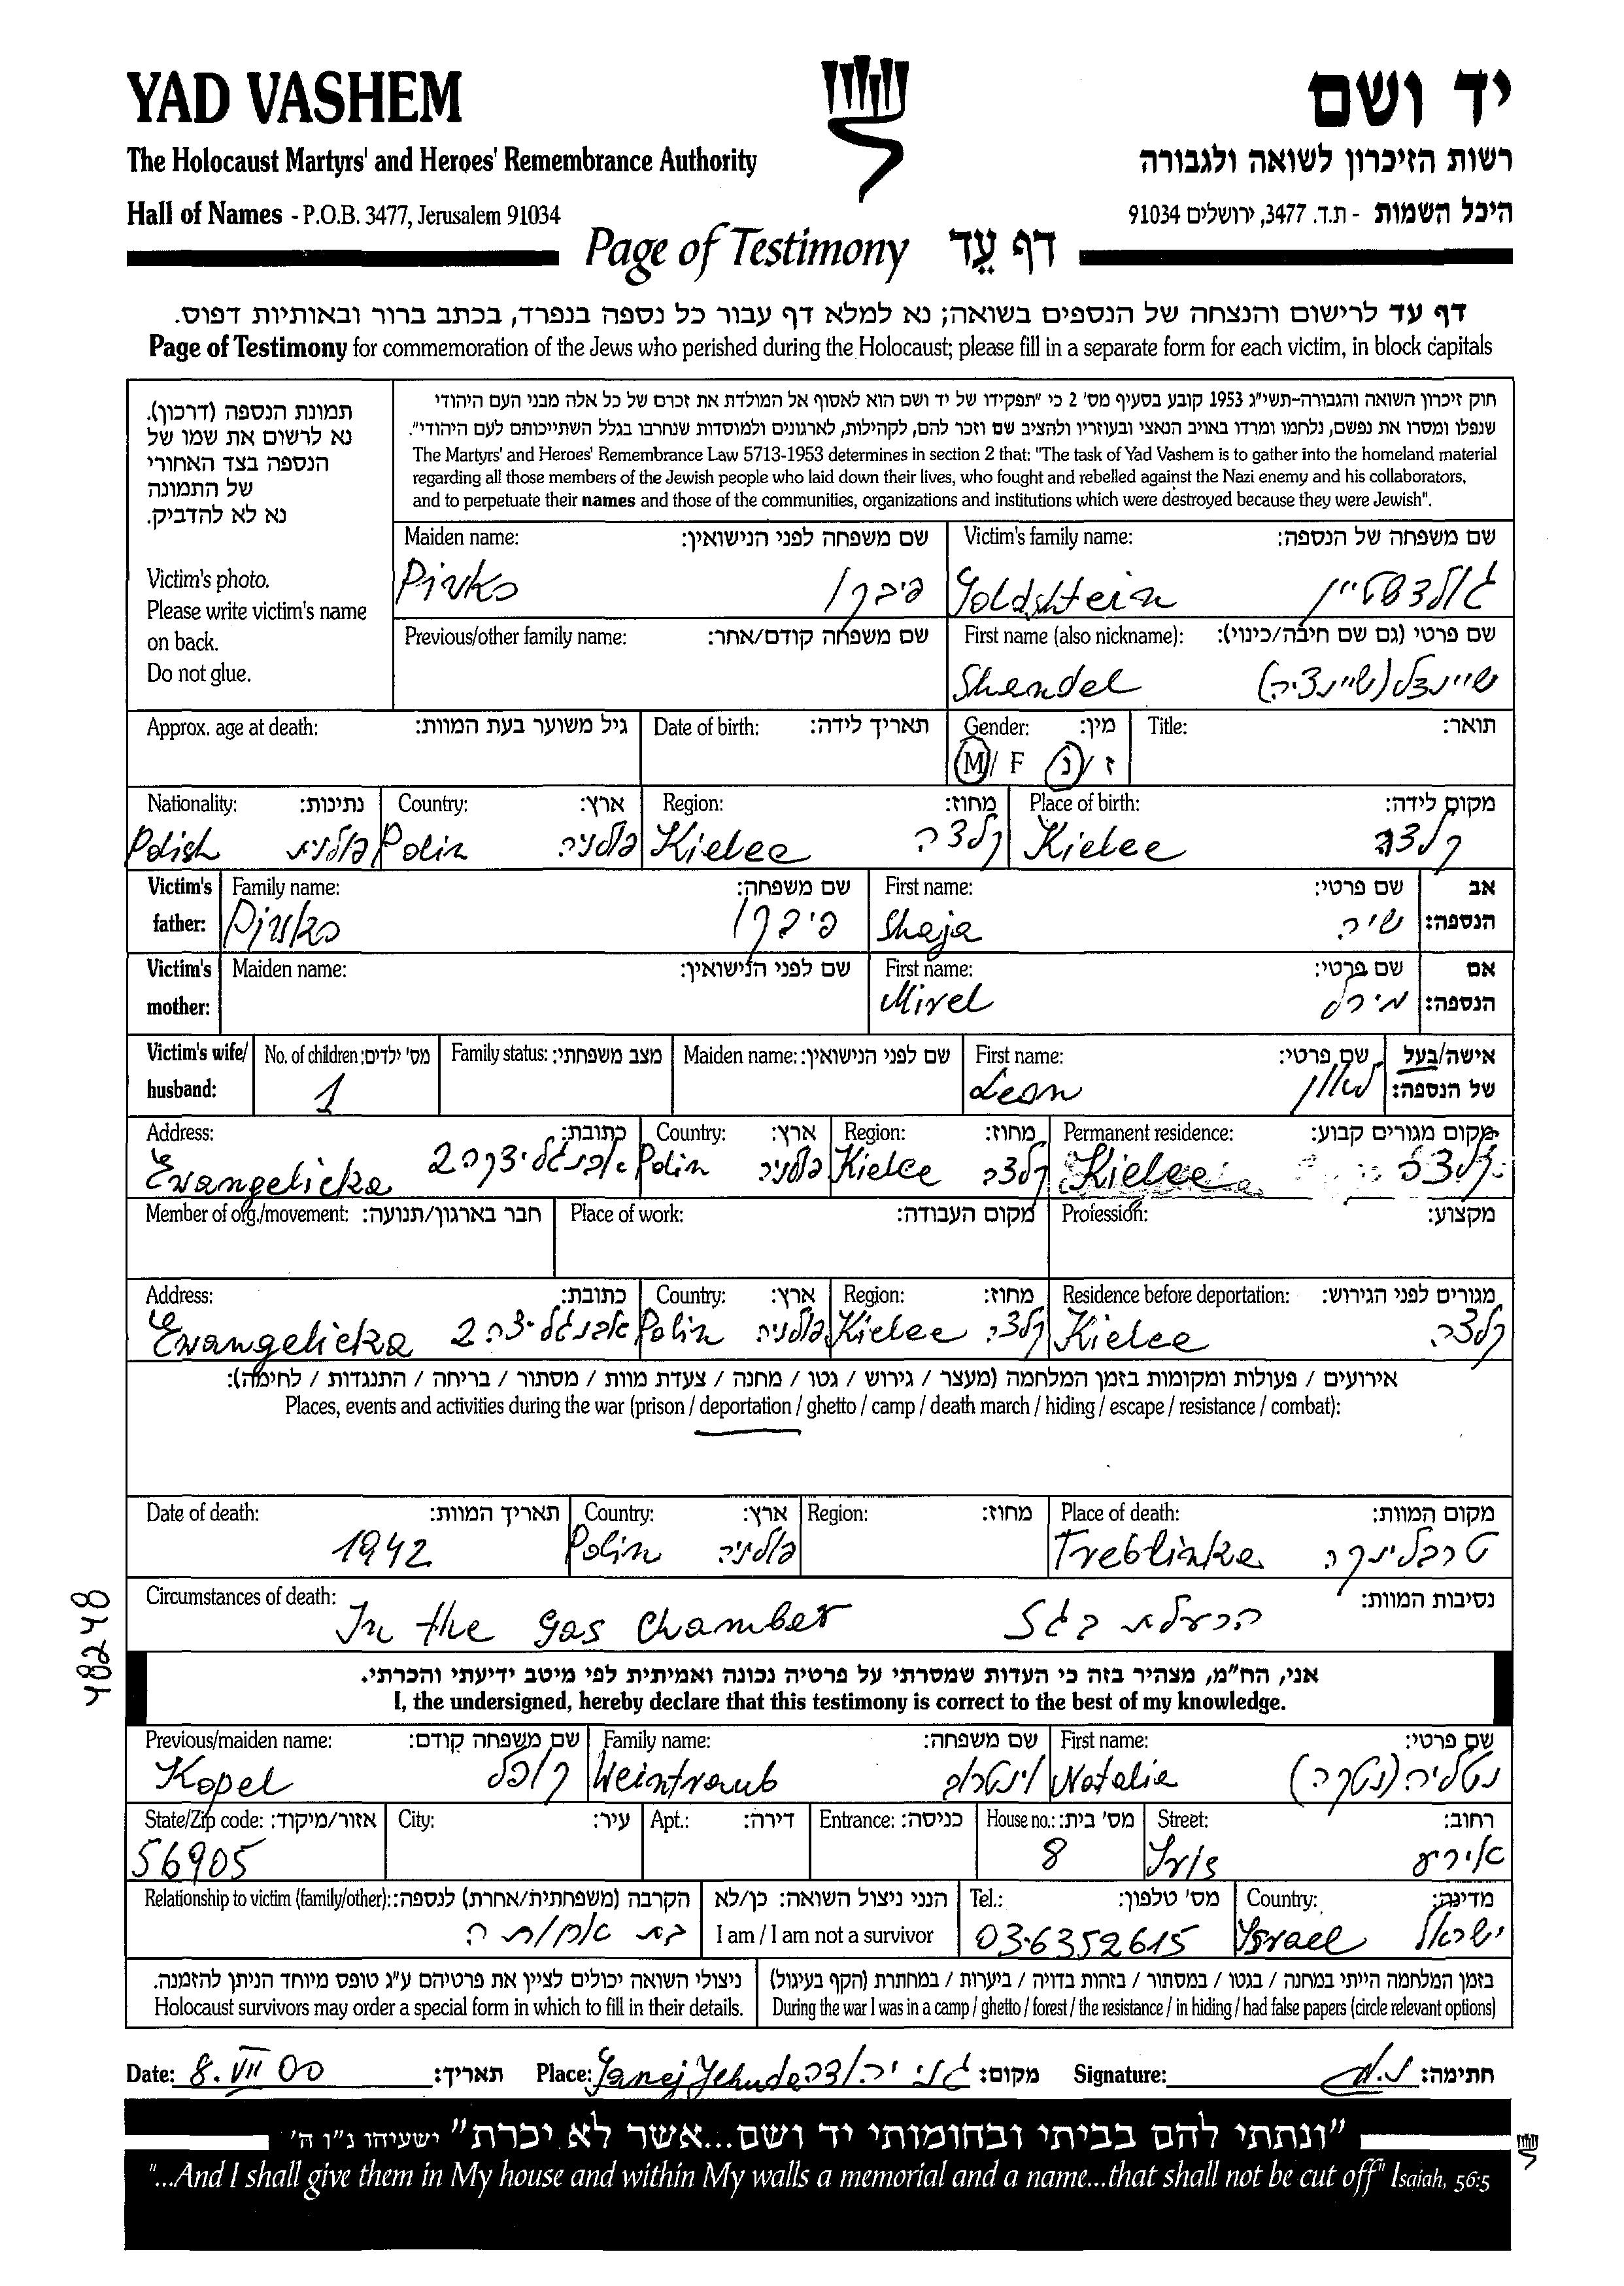 YAD VASHEM יד ושם
The Holocaust Martyrs' and Heroes' Remembrance Authority רשות הזיכרון לשואה ולגבורה
Hall of Names - P.O.B. 3477, Jerusalem 91034 היכל השמות - ת.ד. 3477, ירושלים 91034
Page of Testimony דף עֵד
דף עד לרישום והנצחה של הנספים בשואה; נא למלא דף עבור כל נספה בנפרד, בכתב ברור ובאותיות דפוס.
Page of Testimony for commemoration of the Jews who perished during the Holocaust; please fill in a separate form for each victim, in block capitals
תמונת הנספה (דרכון).
נא לרשום את שמו של
הנספה בצד האחורי
של התמונה
נא לא להדביק.
Victim's photo.
Please write victim's name
on back.
Do not glue.
חוק זיכרון השואה והגבורה-תשי"ג 1953 קובע בסעיף מס' 2 כי "תפקידו של יד ושם הוא לאסוף אל המולדת את זכרם של כל אלה מבני העם היהודי
שנפלו ומסרו את נפשם, נלחמו ומרדו באויב הנאצי ובעוזריו ולהציב שם וזכר להם, לקהילות, לארגונים ולמוסדות שנחרבו בגלל השתייכותם לעם היהודי".
The Martyrs' and Heroes' Remembrance Law 5713-1953 determines in section 2 that: "The task of Yad Vashem is to gather into the homeland material
regarding all those members of the Jewish people who laid down their lives, who fought and rebelled against the Nazi enemy and his collaborators,
and to perpetuate their names and those of the communities, organizations and institutions which were destroyed because they were Jewish".
Maiden name: שם משפחה לפני הנישואין: Victim's family name: שם משפחה של הנספה:
Pirko פירקו Goldshtein גולדשטיין
Previous/other family name: שם משפחה קודם/אחר: First name (also nickname): שם פרטי (גם שם חיבה/כינוי):
Shendel שיינדל (שיינדיה)
Approx. age at death: גיל משוער בעת המוות: Date of birth: תאריך לידה: Gender: מין: Title: תואר:
M / F ז / נ
Nationality: נתינות: Country: ארץ: Region: מחוז: Place of birth: מקום לידה:
Polish פולנית Polin פולניה Kielce קלצה Kielce קלצה
Victim's father: Family name: שם משפחה: First name: שם פרטי: אב הנספה:
פירקו Shaja שיה
Victim's mother: Maiden name: שם לפני הנישואין: First name: שם פרטי: אם הנספה:
Mirel מירל
Victim's wife/ husband: No. of children: מס' ילדים: Family status: מצב משפחתי: Maiden name: שם לפני הנישואין: First name: שם פרטי: אישה/בעל של הנספה:
1 Leon לאון
Address: כתובת: Country: ארץ: Region: מחוז: Permanent residence: מקום מגורים קבוע:
Ewangelicka אבנגליצקה 2 Polin פולניה Kielce קלצה Kielce קלצה
Member of org./movement: חבר בארגון/תנועה: Place of work: מקום העבודה: Profession: מקצוע:
Address: כתובת: Country: ארץ: Region: מחוז: Residence before deportation: מגורים לפני הגירוש:
Ewangelicka אבנגליצה 2 Polin פולניה Kielce קלצה Kielce קלצה
אירועים / פעולות ומקומות בזמן המלחמה (מעצר / גירוש / גטו / מחנה / צעדת מוות / מסתור / בריחה / התנגדות / לחימה):
Places, events and activities during the war (prison / deportation / ghetto / camp / death march / hiding / escape / resistance / combat):
Date of death: תאריך המוות: Country: ארץ: Region: מחוז: Place of death: מקום המוות:
1942 Polin פולניה Treblinka טרבלינקה
Circumstances of death: נסיבות המוות:
In the gas chamber הרעלת בגז
48248
אני, הח"מ, מצהיר בזה כי העדות שמסרתי על פרטיה נכונה ואמיתית לפי מיטב ידיעתי והכרתי.
I, the undersigned, hereby declare that this testimony is correct to the best of my knowledge.
Previous/maiden name: שם משפחה קודם: Family name: שם משפחה: First name: שם פרטי:
Kopel קופל Weintraub וינטרוב Natalia נטליה (נטקה)
State/Zip code: אזור/מיקוד: City: עיר: Apt.: דירה: Entrance: כניסה: House no.: מס' בית: Street: רחוב:
56905 8 Iris איריס
Relationship to victim (family/other): הקרבה (משפחתית/אחרת) לנספה: הנני ניצול השואה: כן/לא Tel.: מס' טלפון: Country: מדינה:
בת אחותה I am / I am not a survivor 03-6352615 Israel ישראל
ניצולי השואה יכולים לציין את פרטיהם ע"ג טופס מיוחד הניתן להזמנה. בזמן המלחמה הייתי במחנה / בגטו / במסתור / בזהות בדויה / ביערות / במחתרת (הקף בעיגול)
Holocaust survivors may order a special form in which to fill in their details. During the war I was in a camp / ghetto / forest / the resistance / in hiding / had false papers (circle relevant options)
Date: 8. VII 00 תאריך: Place: Ganej Jehuda גני יהודה מקום: Signature: חתימה:
"ונתתי להם בביתי ובחומותי יד ושם...אשר לא יכרת" ישעיהו נ"ו ה'
"...And I shall give them in My house and within My walls a memorial and a name...that shall not be cut off" Isaiah, 56:5